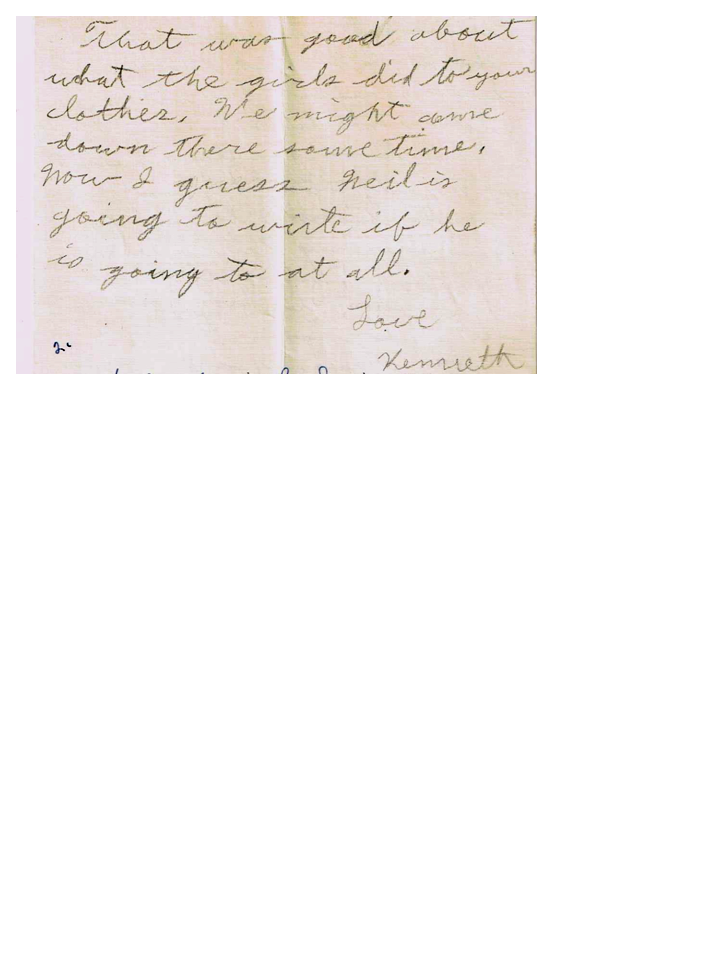 That was good about
what the girls did to your
clothes. We might come
down there some time.
Now I guess Neil is
going to wirte if he
is going to at all.
Love
Kenneth
2.